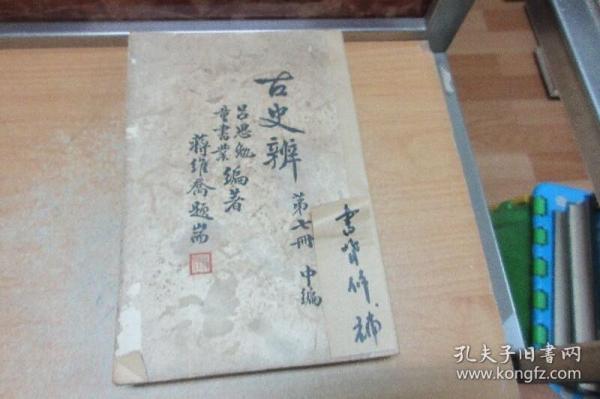 古史辨
第七冊 中編
呂思勉
童書業 編著
蔣維喬題耑
書背修補
孔夫子旧书网
www.kongfz.com